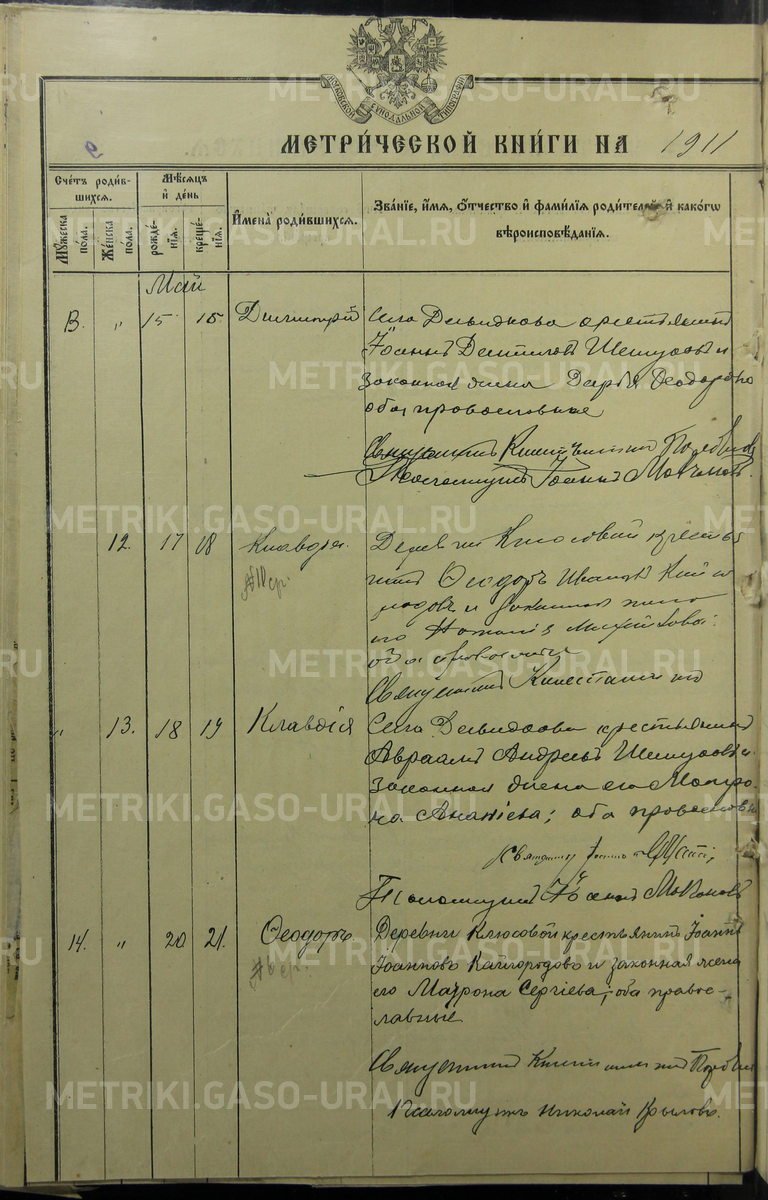 МОСКОВСКОЙ СѴНОДАЛЬНОЙ ТИПОГРАФІИ
9
МЕТРИ́ЧЕСКОЙ КНИ́ГИ НА 1911
Сче́тъ роди́в-
шихся.
Му́жеска
по́ла.
Же́нска
по́ла.
Мѣ́сяцъ
и҆ де́нь
рожде́-
нїя.
креще́-
нїя.
И҆мена̀ роди́вшихся.
Зва́нїе, и҆́мя, ѻ҆́тчество и҆ фами́лїя роди́телей и҆ како́гѡ
вѣроисповѣ́данїя.
Май
" 15 15. Димитрій Села Давидкова крестьянинъ
Іоаннъ Шемуковъ и
законная жена Дарія Ѳеодорова
оба православные
Священникъ
Псаломщикъ Іоаннъ
12. 17 18 Клавдія. Деревни Клюсовой кресть
янинъ Ѳеодоръ Ивановъ Кайго
родовъ и законная жена
его Наталія
оба православные
№ 10 ср.
Священникъ
" 13. 18 19 Клавдія Села Давидкова крестьянинъ
Авраамъ Андреевъ Шемуковъ и
законная жена его Матро
на Ананіева; оба православн
Священникъ
Псаломщикъ Іоаннъ
14. " 20 21. Ѳеодоръ Деревни Клюсовой крестьянинъ Іоаннъ
Іоанновъ Кайгородовъ и законная жена
его Матрона Сергіева; оба право-
славные
№ 6 ср.
Священникъ
Псаломщикъ Николай Крыловъ.
METRIKI.GASO-URAL.RU